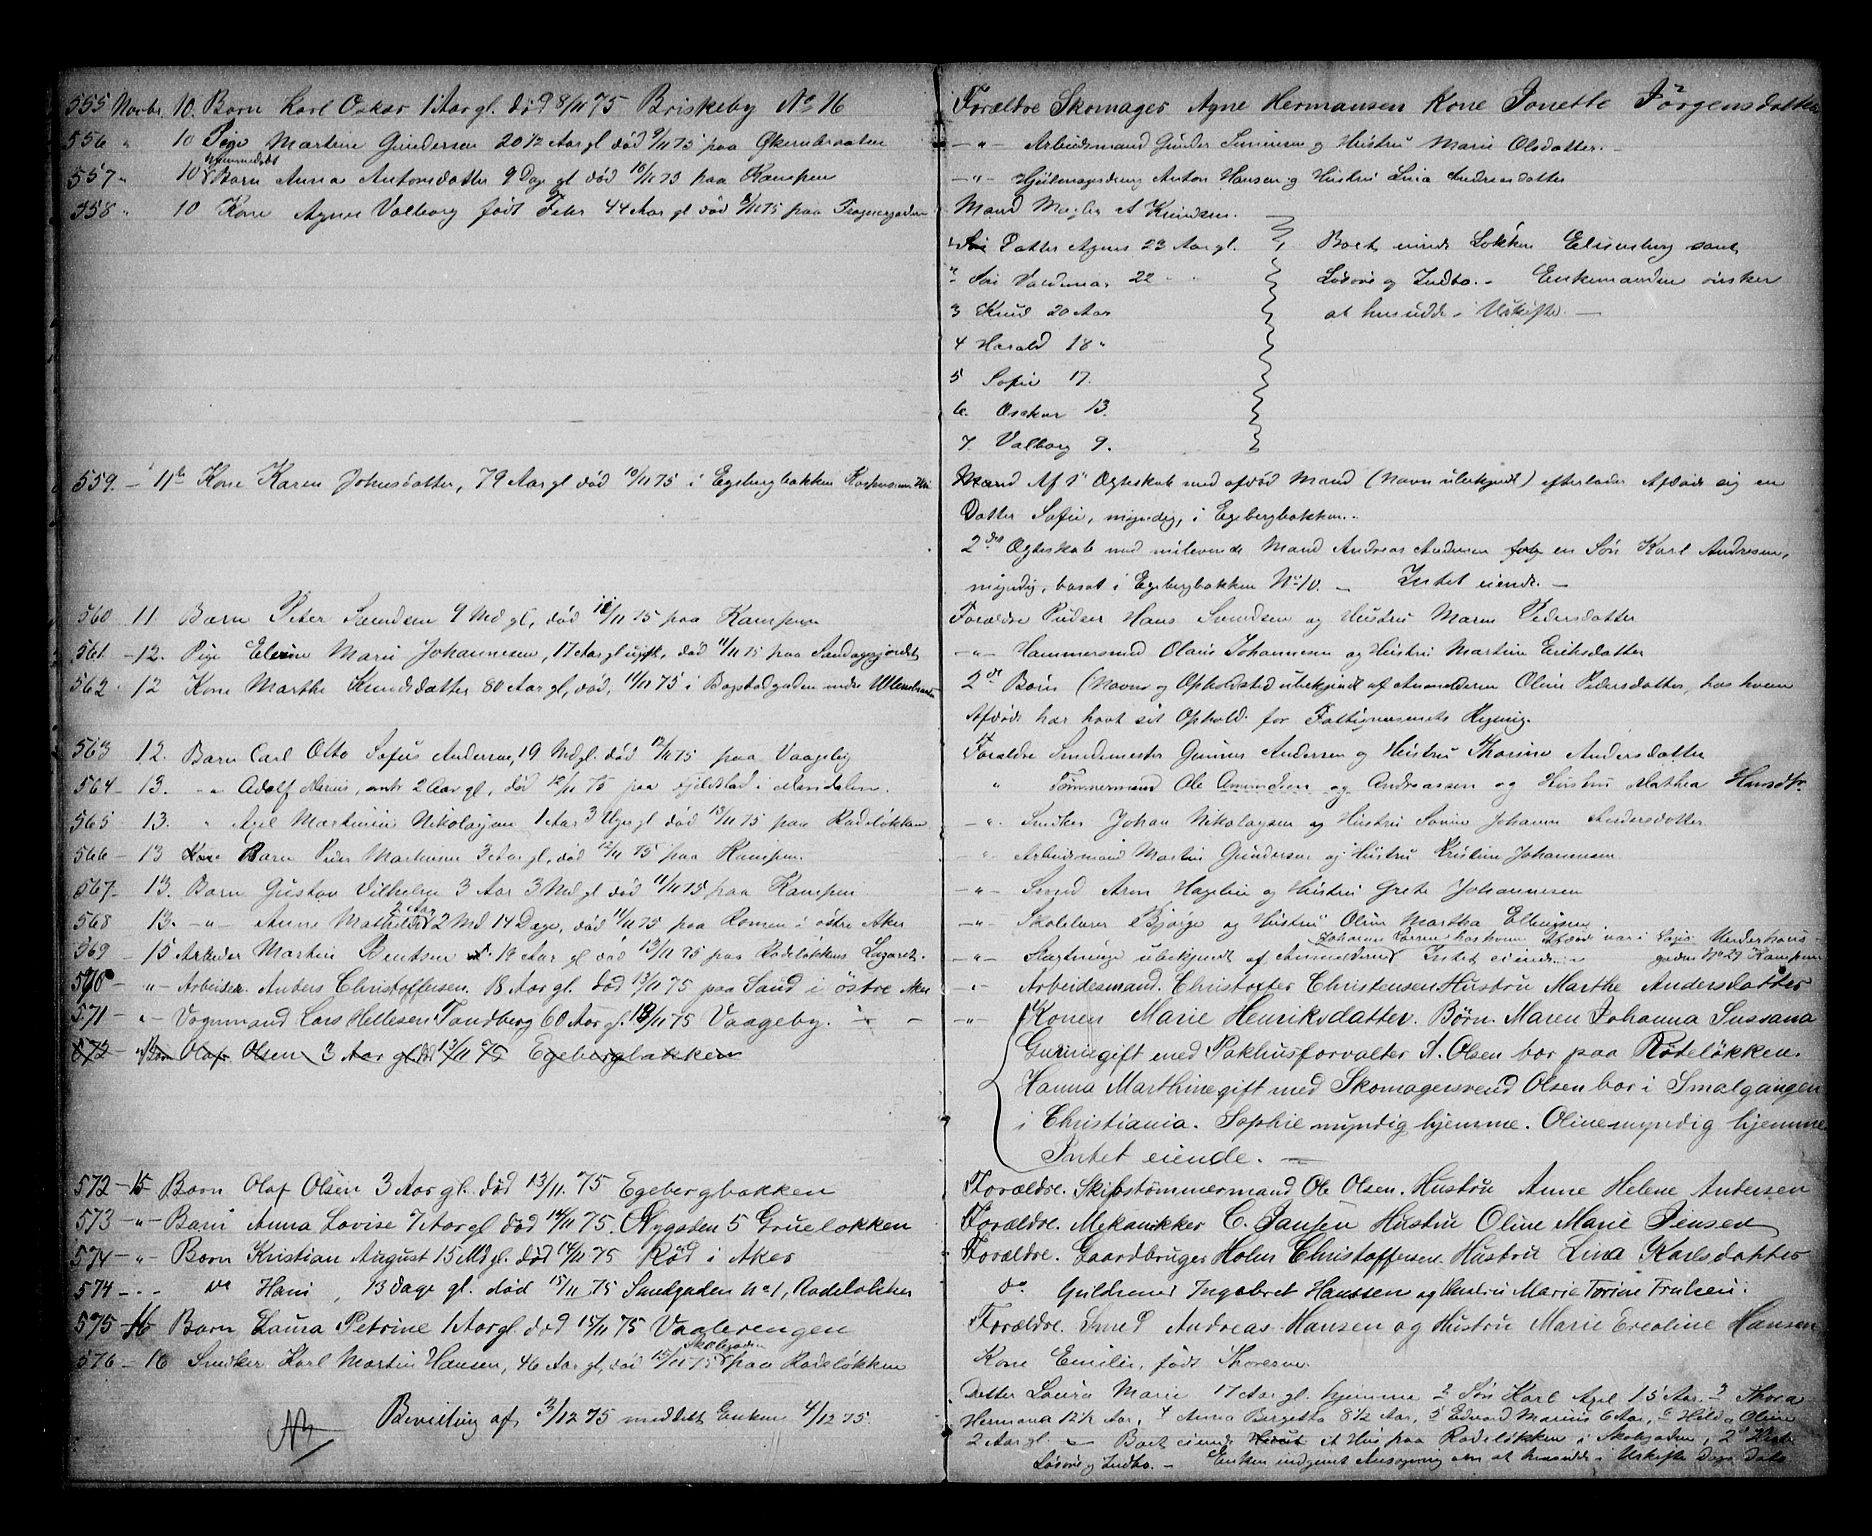 555 Novbr. 10. Barn Karl Oskar 1 Aar gl. död 8/11 75 Briskeby No 16
556 " 10 Pige Martine Gundersen 20 1/2 Aar gl död 9/11 75 paa Økernbraaten
hjemmedöbt
557 " 10 Barn Anna Antonsdatter 9 Dage gl död 10/11 75 paa Kampen
558 " 10 Kone Agnes Valborg født 44 Aar gl död 8/11 75 paa
559. - 11te Kone Karen Johnsdatter, 79 Aar gl död 10/11 75 i Egebergbakken
560 - 11. Barn Peter Svendsen 9 Md gl, död 11/11 75 paa Kampen
561. - 12. Pige Marie Johannesen, 17 Aar gl ugift, död 11/11 75 paa
562. - 12 Kone Marthe Knudsdatter 80 Aar gl, död, 11/11 75 i Bogstadgaden
563 12. Barn Carl Otto Sofus Andersen, 19 Md gl. död 12/11 75 paa Vaageby
564 - 13. - " - Adolf Marius, 2 Aar gl, död 12/11 75 paa i Maridalen.
565 13. " Axel Martinius Nikolaysen 1 Aar 3 Uger gl död 13/11 75 paa Rodeløkken
566 - 13 Kone Barn Peder Martinsen 3 Aar gl, död 12/11 75 paa Kampen.
567 - 13. Barn Gustav Vilhelm 3 Aar 3 Md gl död 11/11 75 paa Kampen
2 Aar
568 13. - " - Anne Mathilde 2 Md 14 Dage, död 11/11 75 paa i østre Aker
569 - 15 Arbeider Martin Bentsen 19 Aar gl död 13/11 75 paa Rodeløkkens Lazaret.
570 - " - Arbeider Anders Christoffersen. 18 Aar gl. död 13/11 75 paa Sand i östre Aker
571 - " - Vognmand Lars Hellesen Tandberg 60 Aar gl. 13/11 75 Vaageby.
572 - " Barn Olaf Olsen 3 Aar gl. död 13/11 75 Egebergbakken
572 - 15 Barn Olaf Olsen 3 Aar gl. död 13/11. 75 Egebergbakken
573 - " - Barn Anna Lovise 7 Aar gl död 14/11 75. Nygaden 5 Grueløkken
574 - " Barn Kristian August 15 Md gl. död 14/11 75 Röd i Aker
574 - - - do Hans, 13 dage gl. död 15/11 75 Smedgaden No 1, Rodeløkken
575 - 16 Barn Laura Petrine 1 Aar gl. död 15/11 75 Vaalerengen
576 - 16 Snedker Karl Martin Hansen, 46 Aar gl, död 15/11 75 Skolegaden paa Rodeløkken
Bevilling af 3/12 75 meddelt Enken 4/12 75.
Forældre Skomager Agne Hermansen Kone Jonette Jörgensdatter
- " - Arbeidsmand Gunder Simensen og Hustru Marie Olsdatter. -
- " - Anton Hansen og Hustru Lina Andreasdatter
Mand Mægler A Knudsen.
1 Datter Agnes 23 Aar gl. Boet eiende Løkken Elisenberg samt
" Sön Valdemar 22 " " Lösöre og Indbo. - Enkemanden önsker
3 Knud 20 Aar at hensidde i Uskifte. -
4 Harald 18 "
5 Sofie 17.
6. Oskar 13.
7. Valborg 9.
Mand Af 1ste Ægteskab med afdöd Mand (Navn ubekjendt) efterlader Afdöde sig en
Datter Sofie, myndig, i Egebergbakken.
2det Ægteskab med nulevende Mand Andreas Andersen en Sön Karl Andresen,
myndig, bosat i Egebergbakken No 10. - Intet eiende. -
Forældre Pudser Hans Svendsen og Hustru Maren Pedersdatter
- " - Hammersmed Olaus Johannesen og Hustru Martine Eriksdatter
2de Börn (Navne og Opholdsted ubekjendt af Anmelderen Oline Pedersdatter, hos hvem
Afdöde har havt sit Ophold for Fattigvæsenets Regning.
Forældre Smedemester Gunnar Andersen og Hustru Thorine Andersdatter
" Tømmermand Ole Amundsen og Andreassen og Hustru Mathea Hansdtr.
- " - Snedker Johan Nikolaysen og Hustru Johanne Andersdatter
- " - Arbeidsmand Martin Gundersen og Hustru Kristine Johannesen
- " - Svend Aron og Hustru Grete Johannesen
- " - Skolelærer Bjørge og Hustru Oline Martha Ellingsen
Johanne Larsen hos hvem Afdöde var i Logis Underhaus-
- " - Slægtninge ubekjendt af Anmelderen Intet eiende. - gaden No 27 Kampen
- " - Arbeidsmand. Christofer Christensen Hustru Marthe Andersdatter
- " - Konen Marie Henriksdatter. Børn. Maren Johanna Sussana
gift med Pakhusforvalter A. Olsen bor paa Rodeløkken.
Hanna Marthine gift med Skomagersvend Olsen bor i Smalgangen
i Christiania. Sophie myndig hjemme. Oline myndig hjemme
Intet eiende. -
Forældre. Skibstømmermand Ole Olsen. Hustru Anne Helene Andersen
Forældre. Mekanikker C. Jansen Hustru Oline Marie Jensen
Forældre. Gaardbruger Holm Christoffersen. Hustru Lina Karlsdatter
do Ingebret Hanssen og Hustru Marie Torine
Forældre. Smed Andreas Hansen og Hustru Marie Eveline Hansen
Kone Emilie, født Thoresen
Datter Laura Marie 17 Aar gl. hjemme 2 Sön Karl Axel 15 Aar. 3 Thora
Hermana 12 1/2 Aar, 4 Anna Birgitta 8 1/2 Aar, 5 Edvard Marius 6 Aar, 6 Hilda Oline
2 Aar gl. - Boet eiende et Hus paa Rodeløkken i Skolegaden,
Lösöre og Indbo. - Enken indgivet Ansøgning om at hensidde i Uskifte Dags Dato